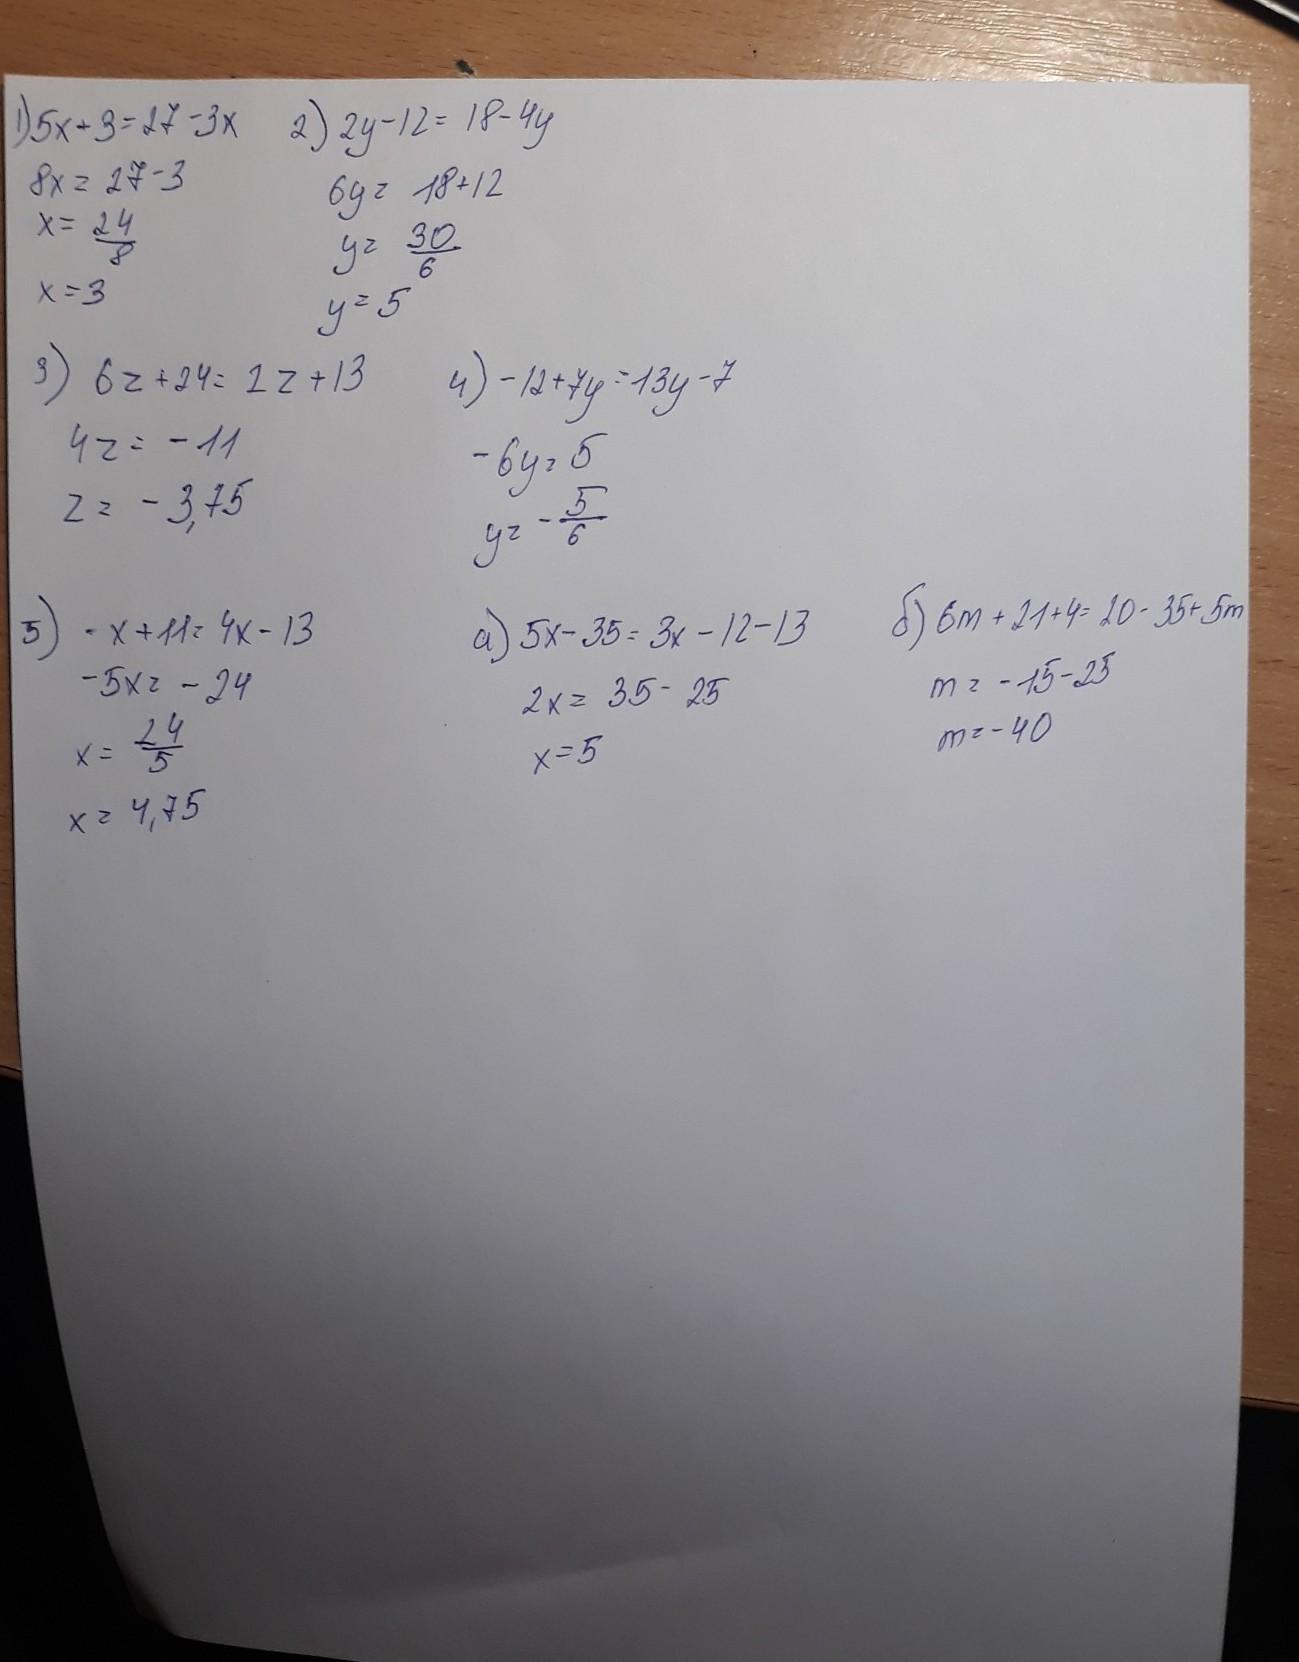 1) 5x+3=27-3x
8x=27-3
x=24/8
x=3
2) 2y-12=18-4y
6y=18+12
y=30/6
y=5
3) 6z+24=2z+13
4z=-11
z=-3,75
4) -12+7y=13y-7
-6y=5
y=-5/6
5) -x+11=4x-13
-5x=-24
x=24/5
x=4,75
а) 5x-35=3x-12-13
2x=35-25
x=5
б) 6m+21+4=20-35+5m
m=-15-25
m=-40